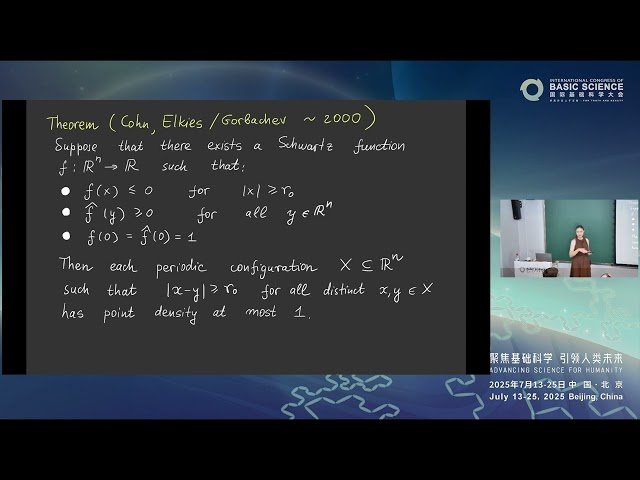 INTERNATIONAL CONGRESS OF
BASIC SCIENCE
国际基础科学大会
Theorem (Cohn, Elkies / Gorbachev ~ 2000)
Suppose that there exists a Schwartz function
f : ℝⁿ → ℝ such that:
• f(x) ≤ 0 for |x| ≥ r₀
• f̂(y) ≥ 0 for all y ∈ ℝⁿ
• f(0) = f̂(0) = 1
Then each periodic configuration X ⊆ ℝⁿ
such that |x-y| ≥ r₀ for all distinct x, y ∈ X
has point density at most 1.
聚焦基础科学 引领人类未来
ADVANCING SCIENCE FOR HUMANITY
2025年7月13-25日 中国·北京
July 13-25, 2025 Beijing, China